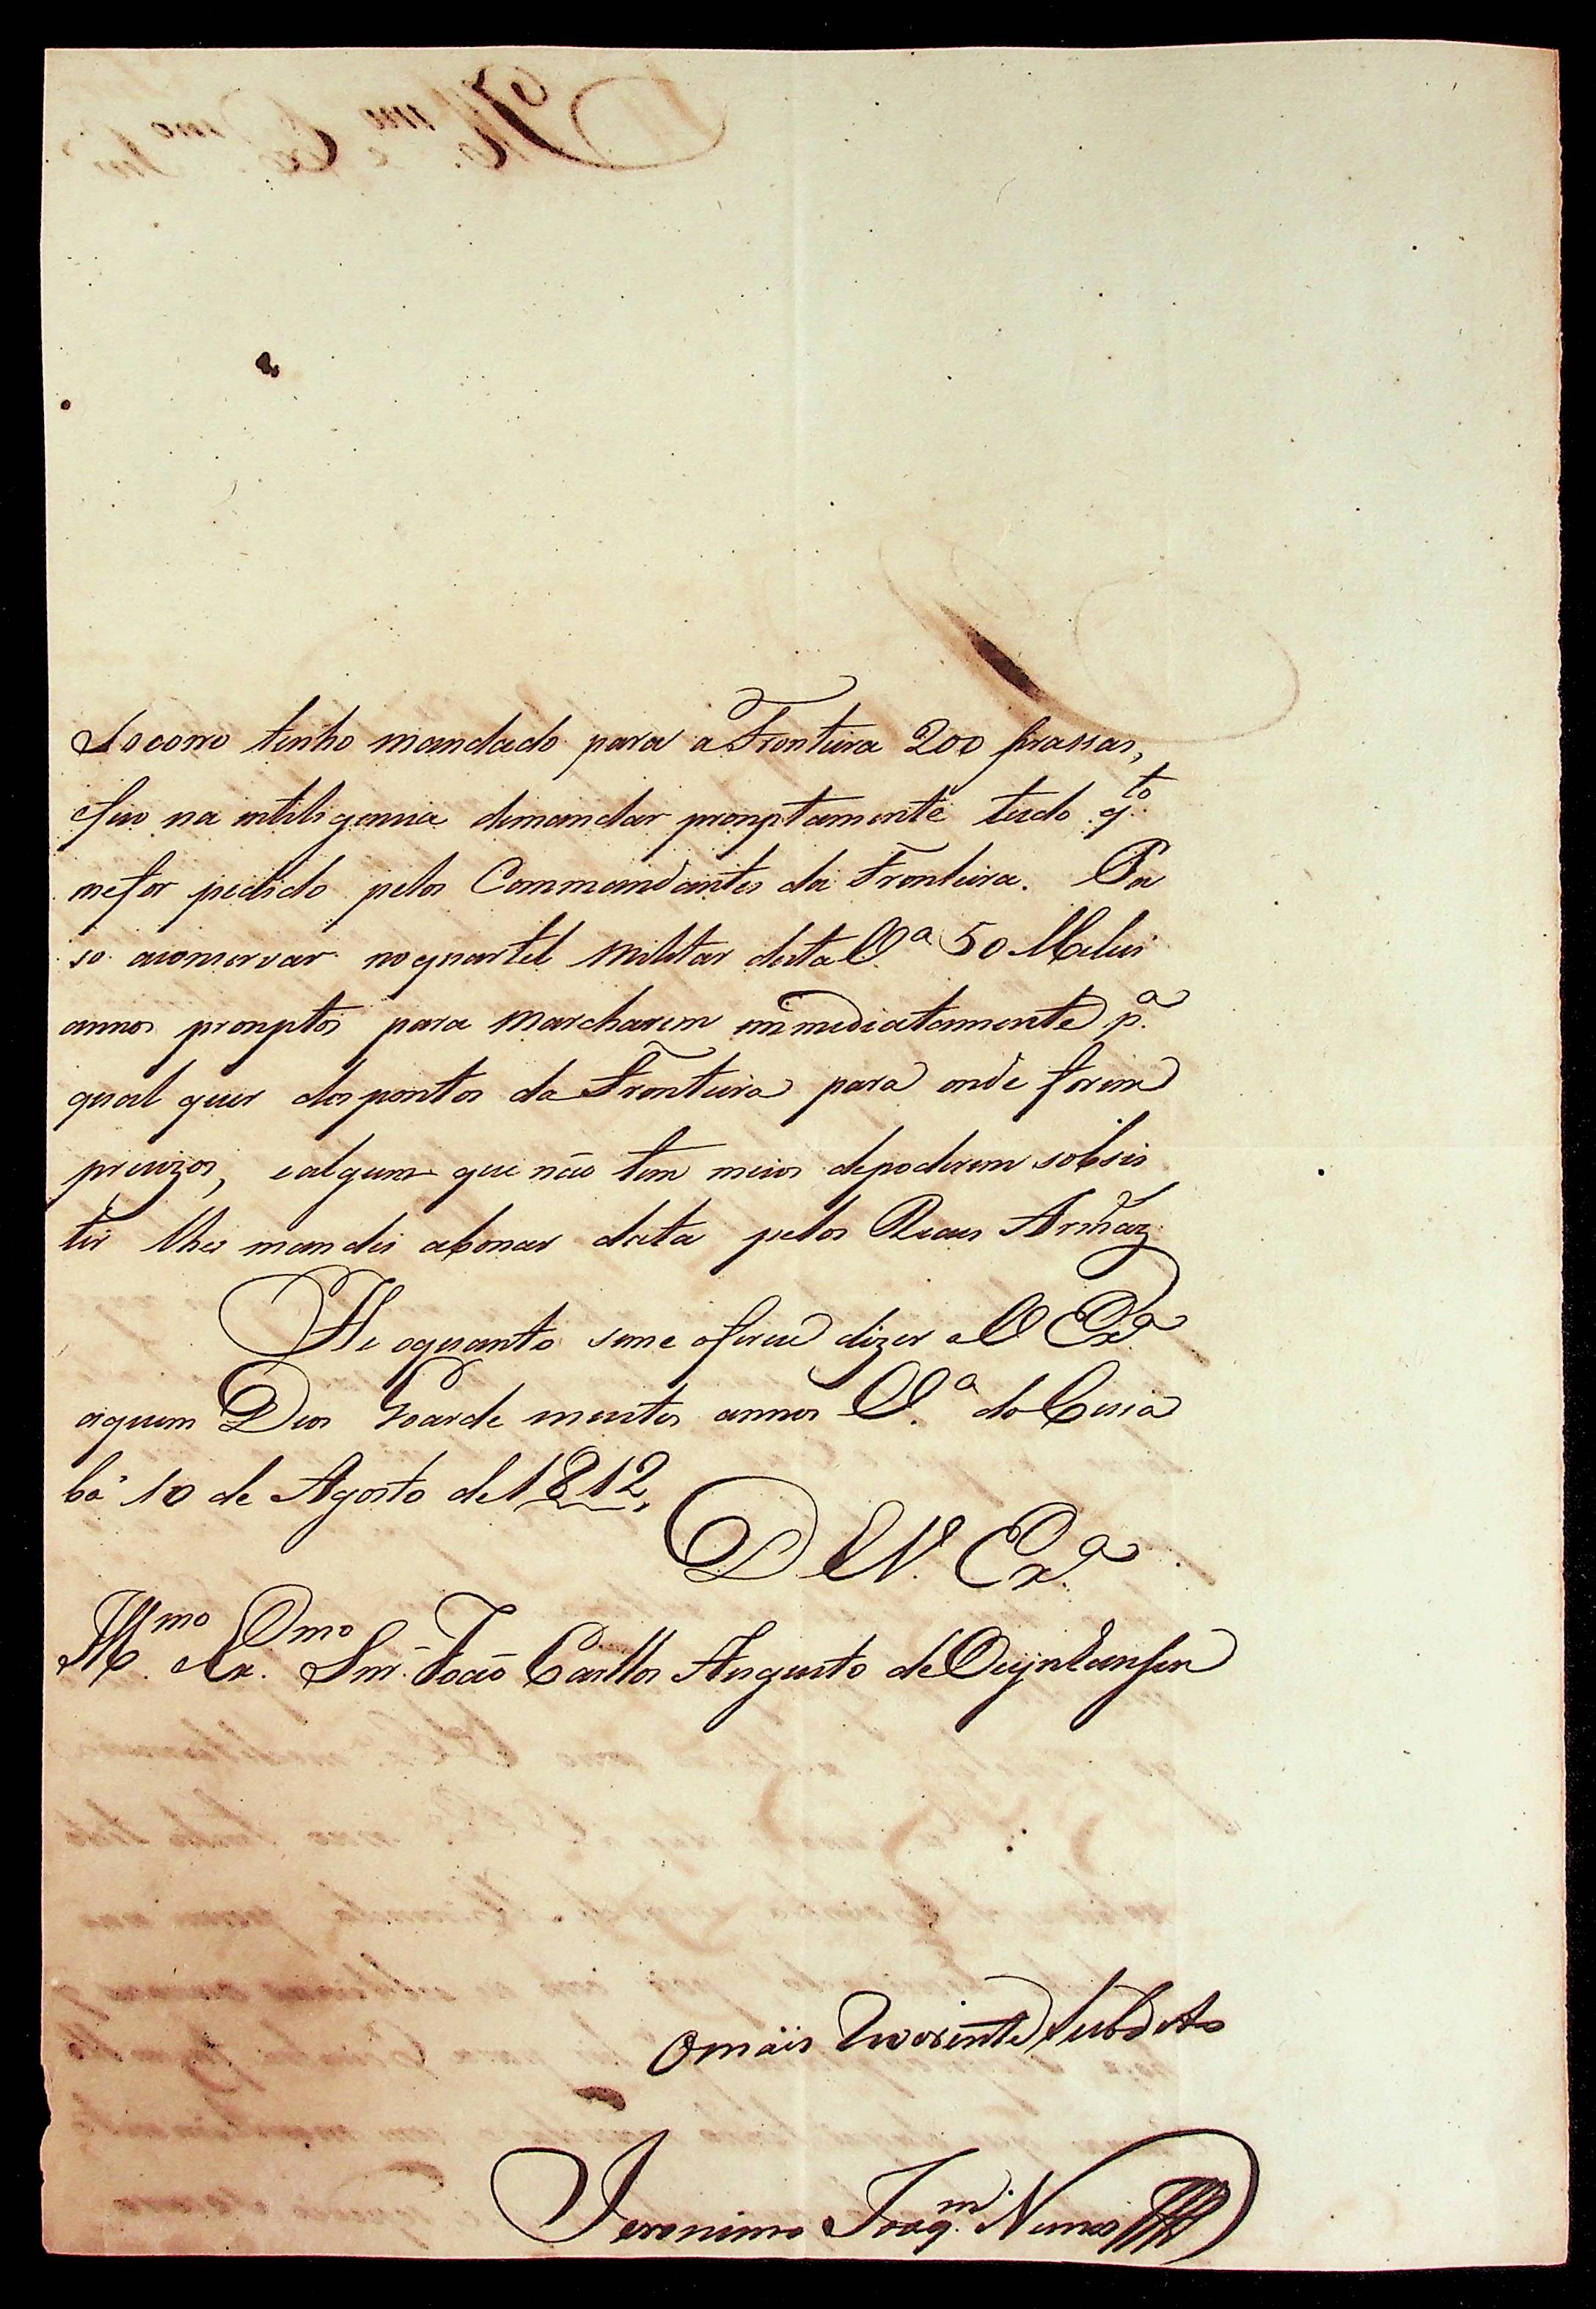 Socorro tenho mandado para a Fronteira 200 prassas,
efico na inteligencia demandar promptamente tudo q.to
mefor pedido pelos Commandantes da Fronteira. Pa
so aconservar noquartel Militar desta V.ª 50 Milici
annos promptos para marcharem immediatamente p.ª
qual quer dos pontos da Fronteira para onde forem
precizos, ealguns que não tem meios depoderem sobsis
tir lhes mandei abonar deeta pelos Reaes Armaz.
He oquanto seme oferece dizer a V Ex.ª
aquem Deos Goarde muitos annos V.ª do Cuia
bá 10 de Agosto de 1812.
D E V. Ex.ª
Ill.mo e Ex.mo Snr. João Carllos Augusto de Oeynhausen
Omais Reverente Subdito
Jeronimo Joaq.m Nunes